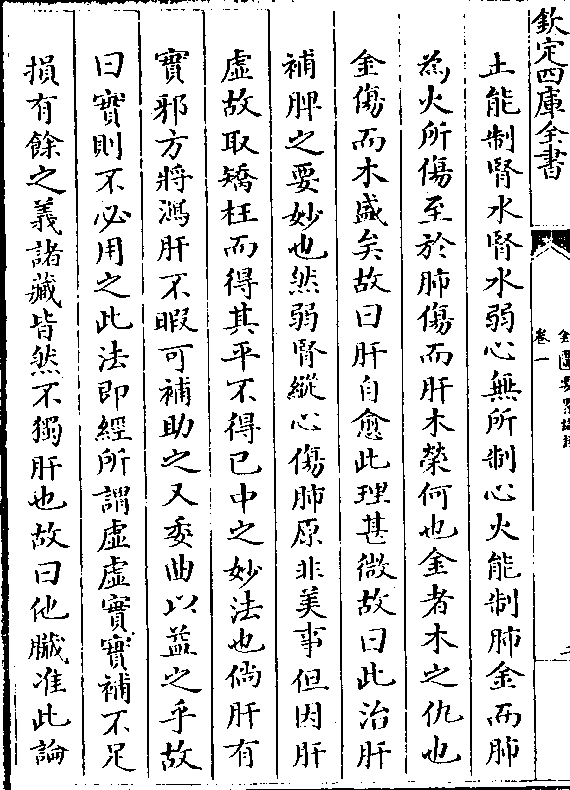 欽定四庫全書
卷一
土能制腎水腎水弱心無所制心火能制肺金而肺
為火所傷至於肺傷而肝木榮何也金者木之仇也
金傷而木盛矣故曰肝自愈此理甚微故曰此治肝
補脾之要妙也然弱腎縱心傷肺原非美事但因肝
虛故取矯枉而得其平不得已中之妙法也倘肝有
實邪方將瀉肝不暇可補助之又委曲以益之乎故
曰實則不必用之此法即經所謂虛虛實實補不足
損有餘之義諸藏皆然不獨肝也故曰他臟准此論